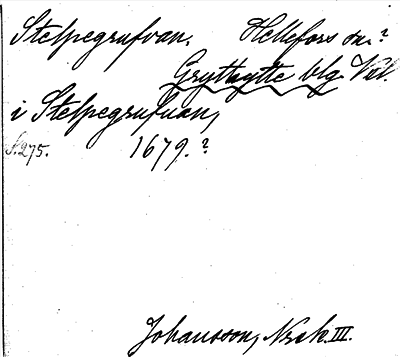 Stelpegrufvan. Hellefors sn?
Grythytte blg. Vstl.
i Stelpegrufvan,
S. 275. 1679.?
Johansson, Norsk. III.